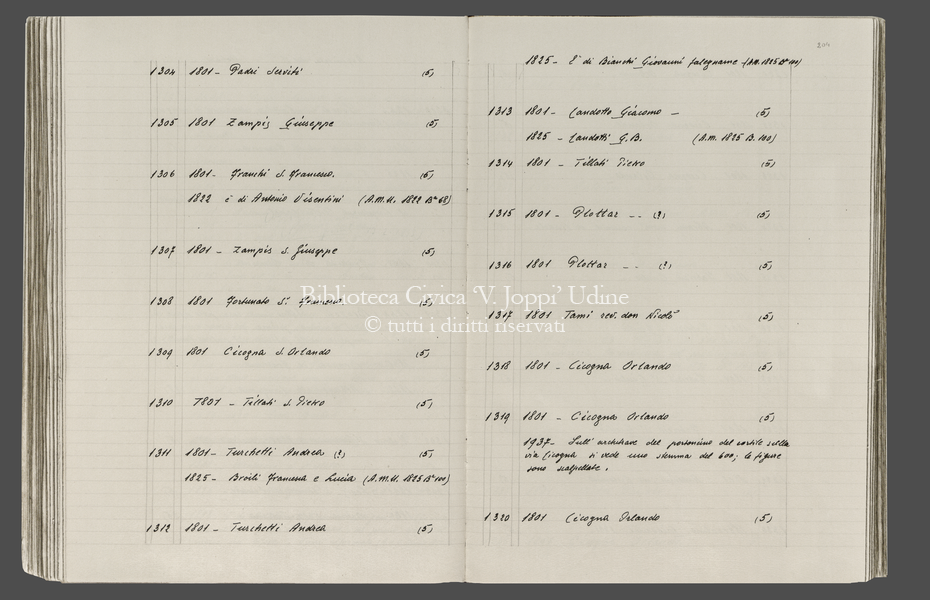 1304 1801 - Padri Serviti (5)
1305 1801 Zampis Giuseppe (5)
1306 1801 - Franchi S. Francesco. (5)
1822 è di Antonio Visentini (A.M.U. 1822 B* 68)
1307 1801 - Zampis S. Giuseppe (5)
1308 1801 Fortunato Sr. (5)
1309 1801 Cicogna S. Orlando (5)
1310 1801 - Tillati S. Pietro (5)
1311 1801 - Turchetti Andrea (?) (5)
1825 - Broili Francesca e Lucia (A.M.U. 1825 B* 100)
1312 1801 - Turchetti Andrea (5)
204
1825 - E' di Bianchi Giovanni falegname (A.M. 1825 B* 100)
1313 1801 - Candotto Giacomo - (5)
1825 - Candotti G.B. (A.M. 1825 B. 100)
1314 1801 - Tillati Pietro (5)
1315 1801 - Plottar -- (?) (5)
1316 1801 Plottar -- (?) (5)
1317 1801 Tami rev. don Nicolò (5)
1318 1801 - Cicogna Orlando (5)
1319 1801 - Cicogna Orlando (5)
1937 - Sull' architrave del portoncino del cortile sulla
via Cicogna si vede uno stemma del 600; le figure
sono scalpellate.
1320 1801 Cicogna Orlando (5)
Biblioteca Civica 'V. Joppi' Udine
© tutti i diritti riservati